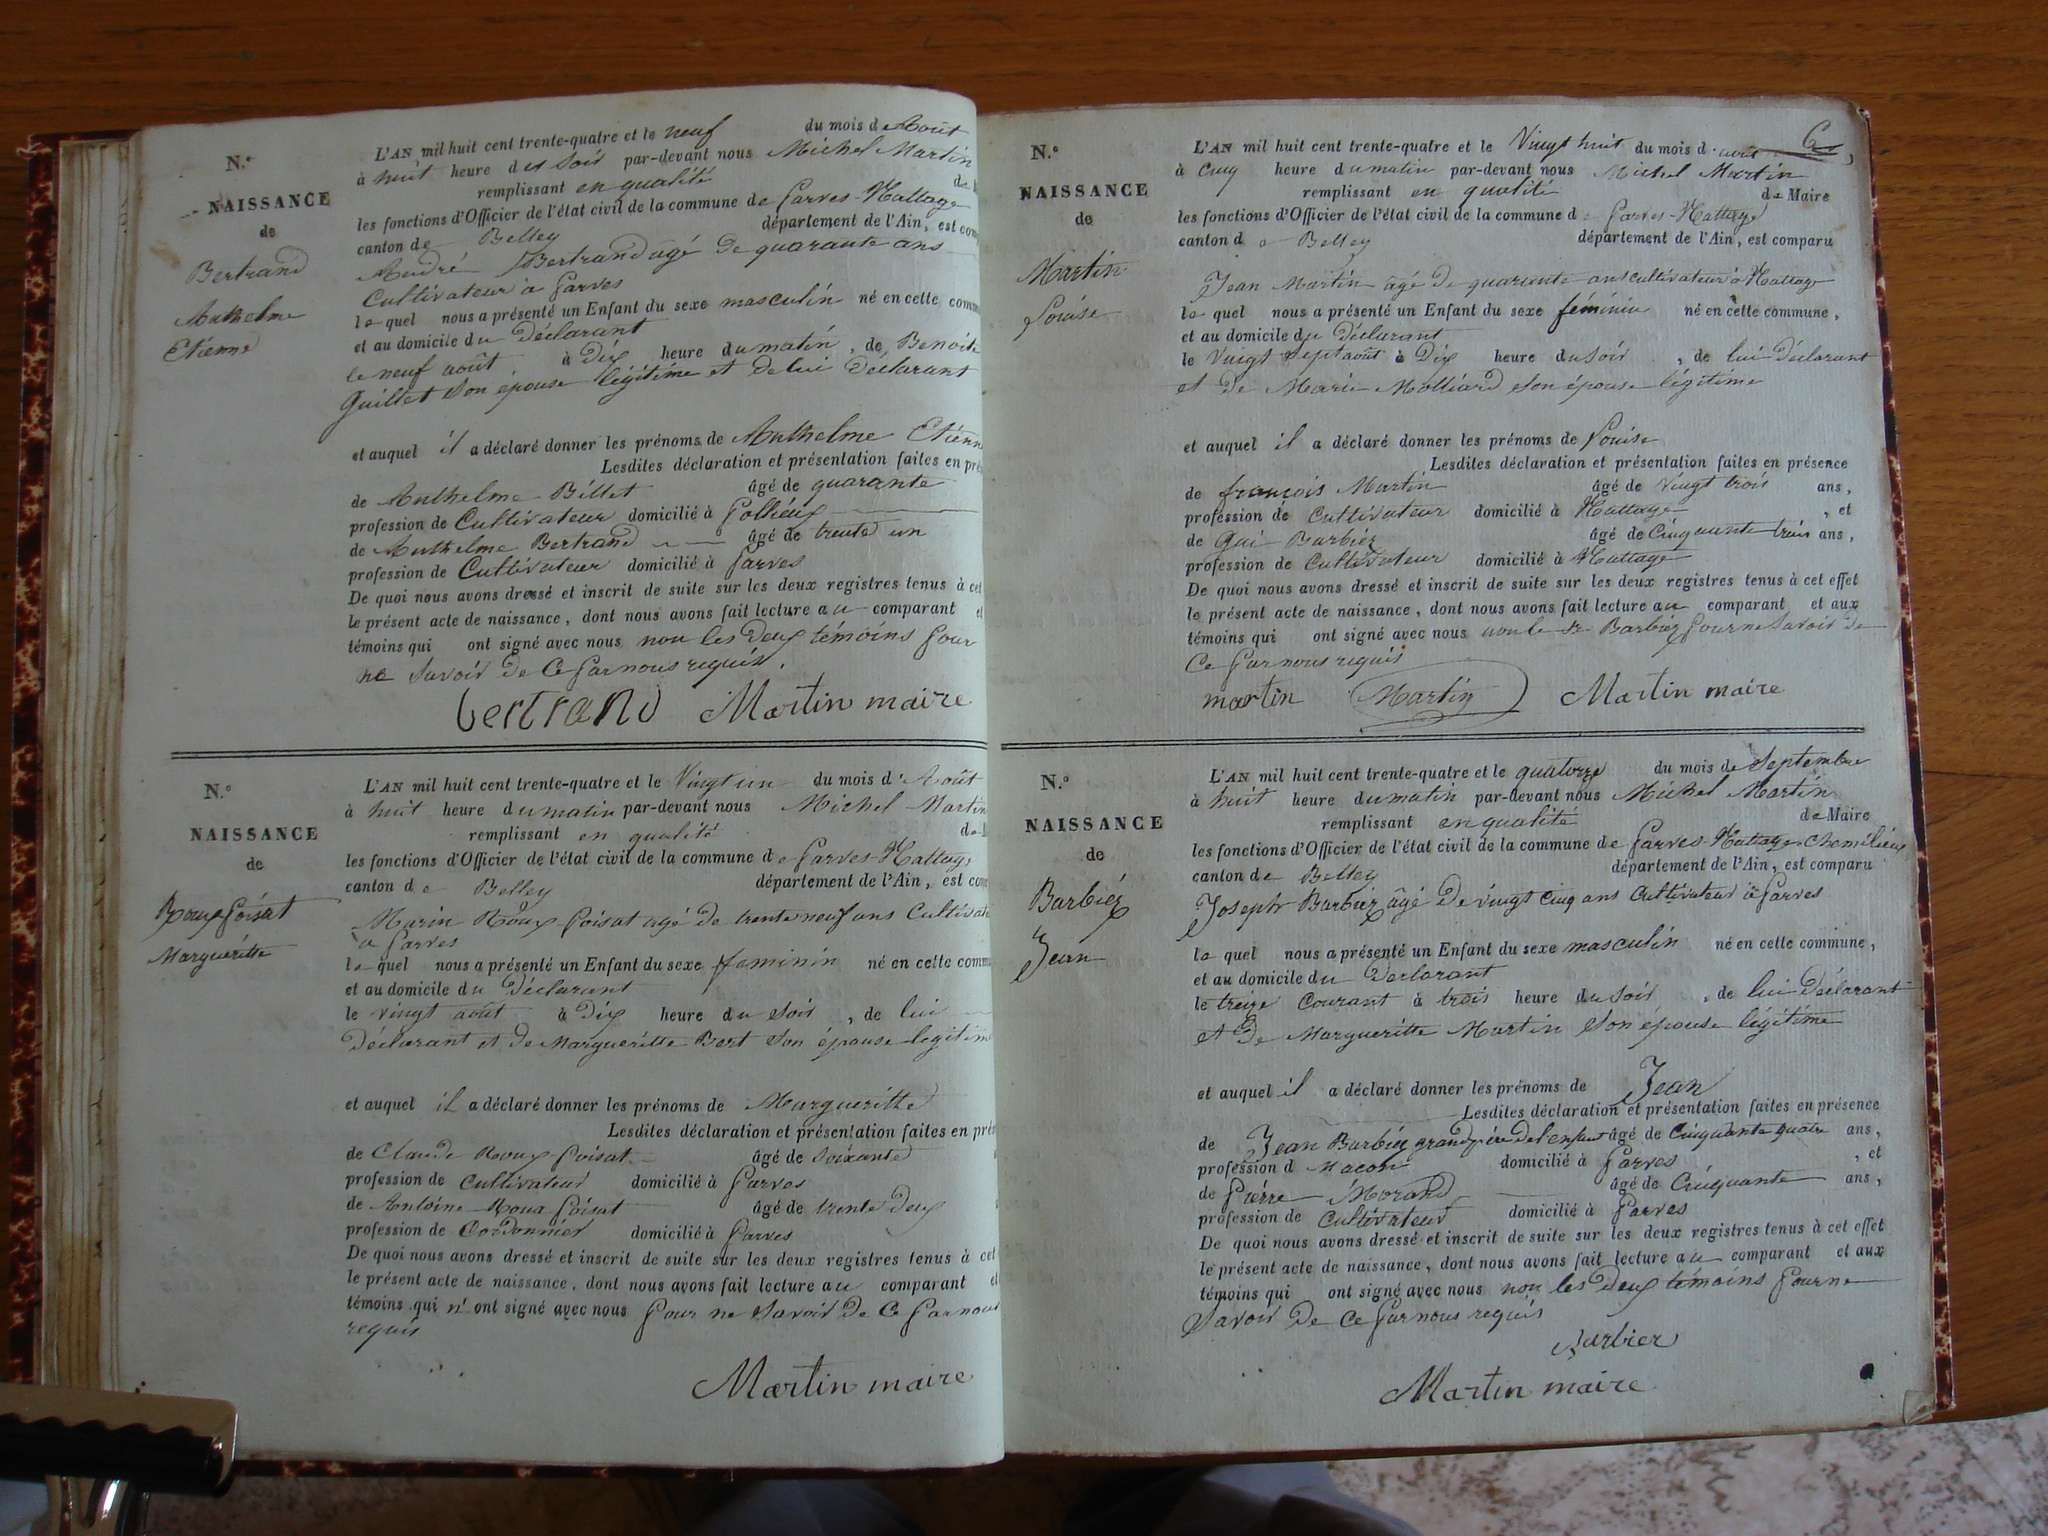 N.º
NAISSANCE
de
Bertrand
Anthelme
Etienne
L'AN mil huit cent trente-quatre et le neuf du mois d'Août
à huit heure du soir par-devant nous Michel Martin
remplissant en qualité de
les fonctions d'Officier de l'état civil de la commune de Parves-Nattage
canton de Belley département de l'Ain, est com
André Bertrand agé de quarante ans
Cultivateur à Parves
lequel nous a présenté un Enfant du sexe masculin né en cette comm
et au domicile du Déclarant
le neuf août à Dix heure du matin, de Benoite
Guillet son épouse légitime et de lui Déclarant
et auquel il a déclaré donner les prénoms de Anthelme Etienne
Lesdites déclaration et présentation faites en pré
de Anthelme Billet âgé de quarante
profession de Cultivateur domicilié à Pollieux
de Anthelme Bertrand âgé de trente un
profession de Cultivateur domicilié à Parves
De quoi nous avons dressé et inscrit de suite sur les deux registres tenus à cet
le présent acte de naissance, dont nous avons fait lecture au comparant et
témoins qui ont signé avec nous non les Deux témoins pour
ne savoir de ce par nous requis.
bertrand Martin maire
N.º
NAISSANCE
de
Roux Poisat
Margueritte
L'AN mil huit cent trente-quatre et le Vingt un du mois d'Août
à huit heure du matin par-devant nous Michel Martin
remplissant en qualité de
les fonctions d'Officier de l'état civil de la commune de Parves-Nattage
canton de Belley département de l'Ain, est com
Marin Roux Poisat agé de trente neuf ans Cultivat
à Parves
lequel nous a présenté un Enfant du sexe feminin né en cette comm
et au domicile du Déclarant
le vingt août à Dix heure du soir, de lui
Déclarant et de Margueritte Bert son épouse legitim
et auquel il a déclaré donner les prénoms de Margueritte
Lesdites déclaration et présentation faites en pré
de Claude Roux Poisat âgé de soixante
profession de Cultivateur domicilié à Parves
de Antoine Roux Poisat âgé de trente Deux
profession de Cordonnier domicilié à Parves
De quoi nous avons dressé et inscrit de suite sur les deux registres tenus à cet
le présent acte de naissance, dont nous avons fait lecture au comparant et
témoins qui n'ont signé avec nous pour ne savoir de ce par nous
requis
Martin maire
6
N.º
NAISSANCE
de
Martin
Louise
L'AN mil huit cent trente-quatre et le Vingt huit du mois d'août
à cinq heure du matin par-devant nous Michel Martin
remplissant en qualité de Maire
les fonctions d'Officier de l'état civil de la commune de Parves-Nattage
canton de Belley département de l'Ain, est comparu
Jean Martin âgé de quarante ans cultivateur à Nattage
lequel nous a présenté un Enfant du sexe féminin né en cette commune,
et au domicile du Déclarant
le Vingt sept août à Dix heure du soir, de lui Déclarant
et de Marie Molliard son épouse légitime
et auquel il a déclaré donner les prénoms de Louise
Lesdites déclaration et présentation faites en présence
de françois Martin âgé de Vingt trois ans,
profession de Cultivateur domicilié à Nattage, et
de Gui Barbier âgé de Cinquante trois ans,
profession de Cultivateur domicilié à Nattage
De quoi nous avons dressé et inscrit de suite sur les deux registres tenus à cet effet
le présent acte de naissance, dont nous avons fait lecture au comparant et aux
témoins qui ont signé avec nous non le Sr Barbier pour ne savoir de
Ce par nous requis
martin Martin Martin maire
N.º
NAISSANCE
de
Barbier
Jean
L'AN mil huit cent trente-quatre et le quatorze du mois de Septembre
à huit heure du matin par-devant nous Michel Martin
remplissant en qualité de Maire
les fonctions d'Officier de l'état civil de la commune de Parves-Nattage-Chemilieu
canton de Belley département de l'Ain, est comparu
Joseph Barbier âgé de vingt cinq ans Cultivateur à Parves
lequel nous a présenté un Enfant du sexe masculin né en cette commune,
et au domicile du Declarant
le treize Courant à trois heure du soir, de lui Déclarant
et De Margueritte Martin son épouse légitime
et auquel il a déclaré donner les prénoms de Jean
Lesdites déclaration et présentation faites en présence
de Jean Barbier grand père de l'enfant âgé de Cinquante quatre ans,
profession d Macon domicilié à Parves, et
de Pierre Morand âgé de Cinquante ans,
profession de Cultivateur domicilié à Parves
De quoi nous avons dressé et inscrit de suite sur les deux registres tenus à cet effet
le présent acte de naissance, dont nous avons fait lecture au comparant et aux
témoins qui ont signé avec nous non les Deux témoins pour ne
savoir De ce par nous requis
barbier
Martin maire